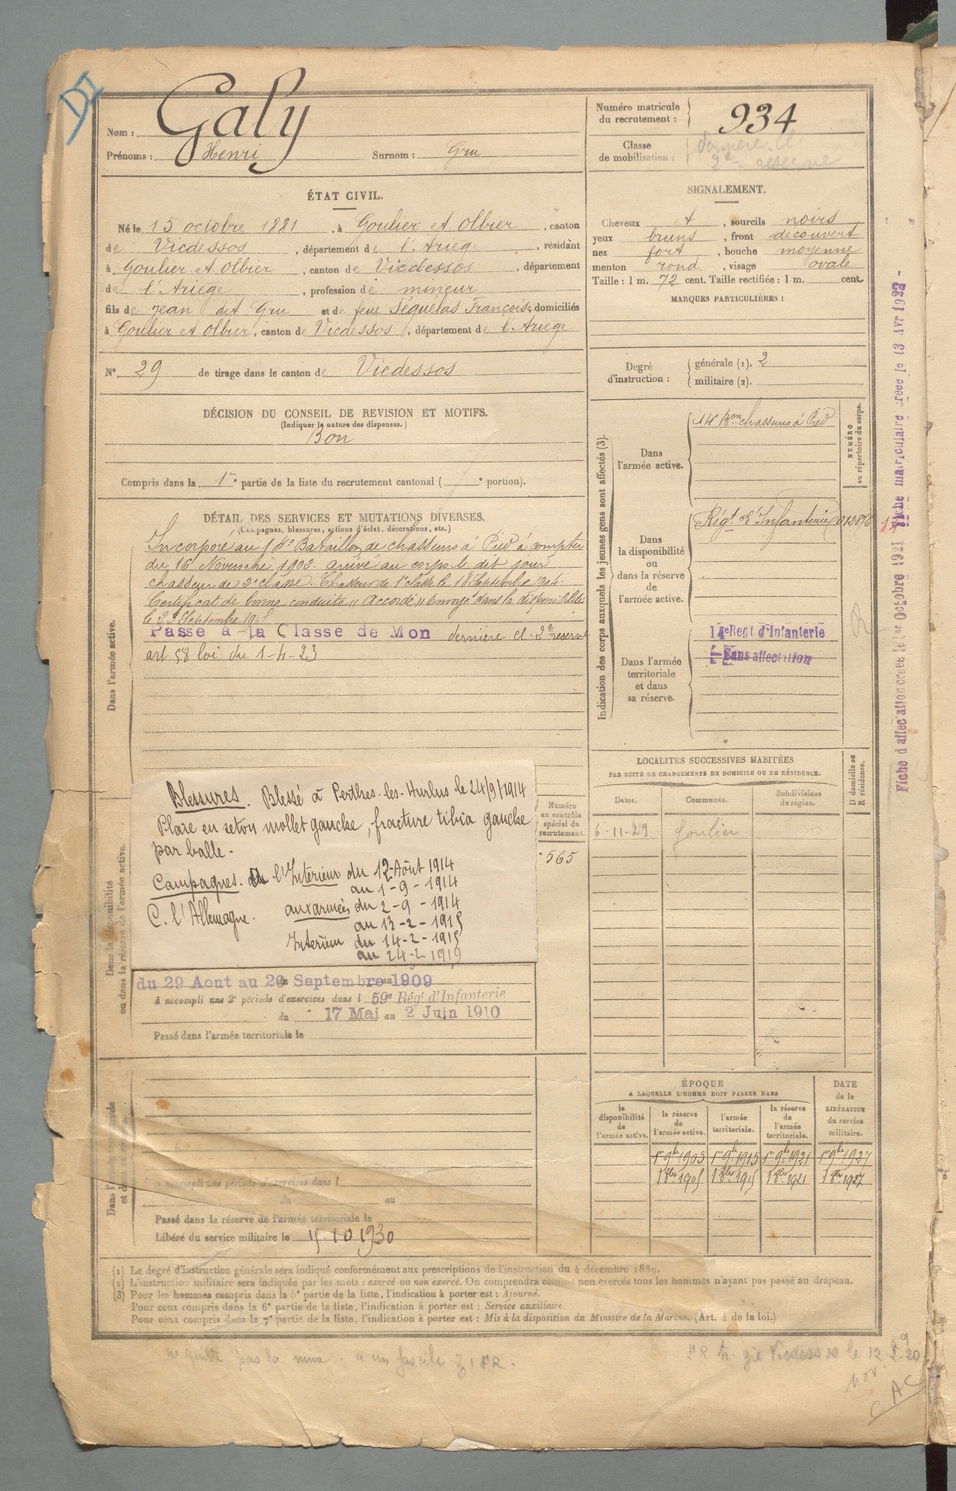 DI
Nom : Galy
Prénoms : Henri Surnom : Gru
Numéro matricule du recrutement : 934
Classe de mobilisation : dernière Cl.
2e reserve
ÉTAT CIVIL.
Né le 15 octobre 1881, à Goulier et Olbier, canton
de Vicdessos, département de l'Ariège, résidant
à Goulier et Olbier, canton de Vicdessos, département
de l'Ariège, profession de mineur
fils de Jean dit Gru et de feue Séguélas Françoise, domiciliés
à Goulier et Olbier, canton de Vicdessos, département de l'Ariège
N° 29 de tirage dans le canton de Vicdessos
SIGNALEMENT.
Cheveux et, sourcils noirs
yeux bruns, front découvert
nez fort, bouche moyenne
menton rond, visage ovale
Taille : 1 m. 72 cent. Taille rectifiée : 1 m. cent.
MARQUES PARTICULIÈRES :
Degré d'instruction : générale (1). 2
militaire (2).
DÉCISION DU CONSEIL DE REVISION ET MOTIFS.
(Indiquer la nature des dispenses.)
Bon
Compris dans la 1re partie de la liste du recrutement cantonal ( e portion).
DÉTAIL DES SERVICES ET MUTATIONS DIVERSES.
(Campagnes, blessures, actions d'éclat, décorations, etc.)
Dans l'armée active.
Incorporé au 14e Bataillon de chasseurs à Pied à compter
du 16 Novembre 1902. arrivé au corps le dit jour
chasseur de 2e classe. Chasseur de 1e classe le 18 Septembre 1904.
Certificat de bonne conduite "Accordé" Envoyé dans la disponibilité
le 23 Septembre
Passé à la Classe de Mon dernière cl. 2e reserve
art 58 loi du 1-4-23
Indication des corps auxquels les jeunes gens sont affectés (3).
NUMÉRO au répertoire du corps.
Dans l'armée active.
14e Bon chasseurs à Pied
Dans la disponibilité ou dans la réserve de l'armée active.
Régt d'Infanterie
Dans l'armée territoriale et dans sa réserve.
14eRegt d'Infanterie
Sans affectation
Fiche d'affectation créée le 1er Octobre 1921 Fiche matriculaire créée le 13 Avr 1922 -
Blessures. Blessé à Perthes-les-Hurlus le 24/9/1914
Plaie en seton mollet gauche, fracture tibia gauche
par balle.
Campagnes. Intérieur du 12-Août 1914
au 1-9-1914
C. l'Allemagne. aux armées du 2-9-1914
au 13-2-1915
Intérieur du 14-2-1915
au 24-2-1919
Numéro au contrôle spécial du recrutement.
565
Dans la disponibilité ou dans la réserve de l'armée active.
du 29 Aout au 20 Septembre 1909
A accompli une 2e période d'exercices dans l 59e Régt d'Infanterie
du 17 Mai au 2 Juin 1910
Passé dans l'armée territoriale le
LOCALITÉS SUCCESSIVES HABITÉES
PAR SUITE DE CHANGEMENTS DE DOMICILE OU DE RÉSIDENCE.
Dates. Communes. Subdivisions de région. D domicile ou R résidence.
6-11-29 Goulier
ÉPOQUE
A LAQUELLE L'HOMME DOIT PASSER DANS
la disponibilité de l'armée active. la réserve de l'armée active. l'armée territoriale. la réserve de l'armée territoriale. DATE de la LIBÉRATION du service militaire.
1er 9bre 1905 1er 9bre 1915 1er 9bre 1921 1er 9bre 1927
accompli une période d'exercices dans l
du au
Passé dans la réserve de l'armée territoriale le
Libéré du service militaire le 15-10 1930
(1) Le degré d'instruction générale sera indiqué conformément aux prescriptions de l'instruction du 4 décembre 1889.
(2) L'instruction militaire sera indiquée par les mots : exercé ou non exercé. On comprendra comme non exercés tous les hommes n'ayant pas passé au drapeau.
(3) Pour les hommes compris dans la 5e partie de la liste, l'indication à porter est : Ajourné.
Pour ceux compris dans la 6e partie de la liste, l'indication à porter est : Service auxiliaire.
Pour ceux compris dans la 7e partie de la liste, l'indication à porter est : Mis à la disposition du Ministre de la Marine. (Art. 4 de la loi.)
CAC